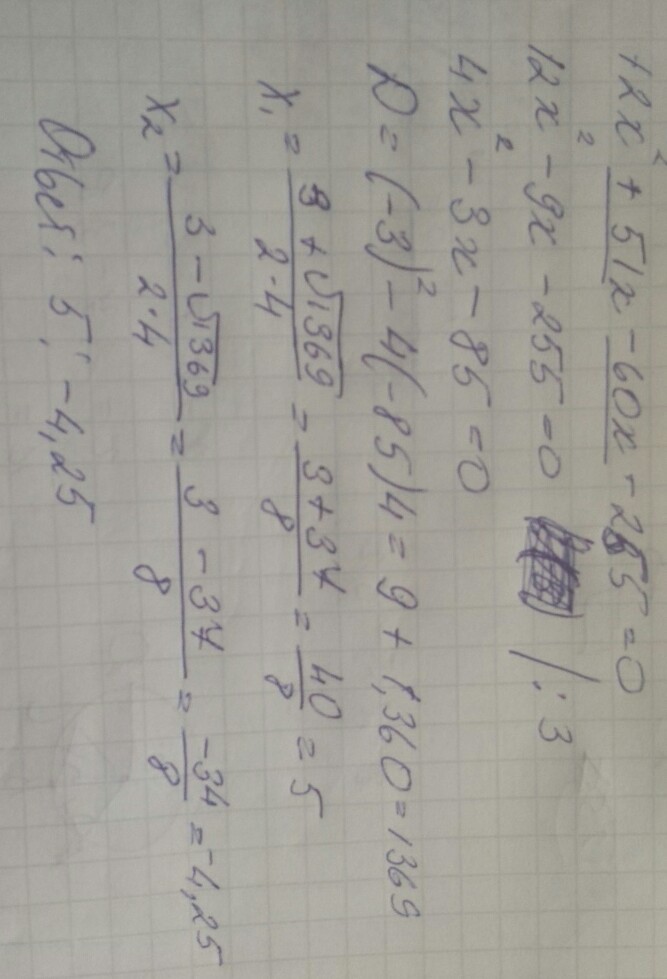 12x² + 51x - 60x - 255 = 0
12x² - 9x - 255 = 0 /: 3
4x² - 3x - 85 = 0
D = (-3)² - 4(-85)4 = 9 + 1360 = 1369
x₁ = 3 + √1369 / 2·4 = 3 + 37 / 8 = 40 / 8 = 5
x₂ = 3 - √1369 / 2·4 = 3 - 37 / 8 = -34 / 8 = -4,25
Ответ: 5; -4,25